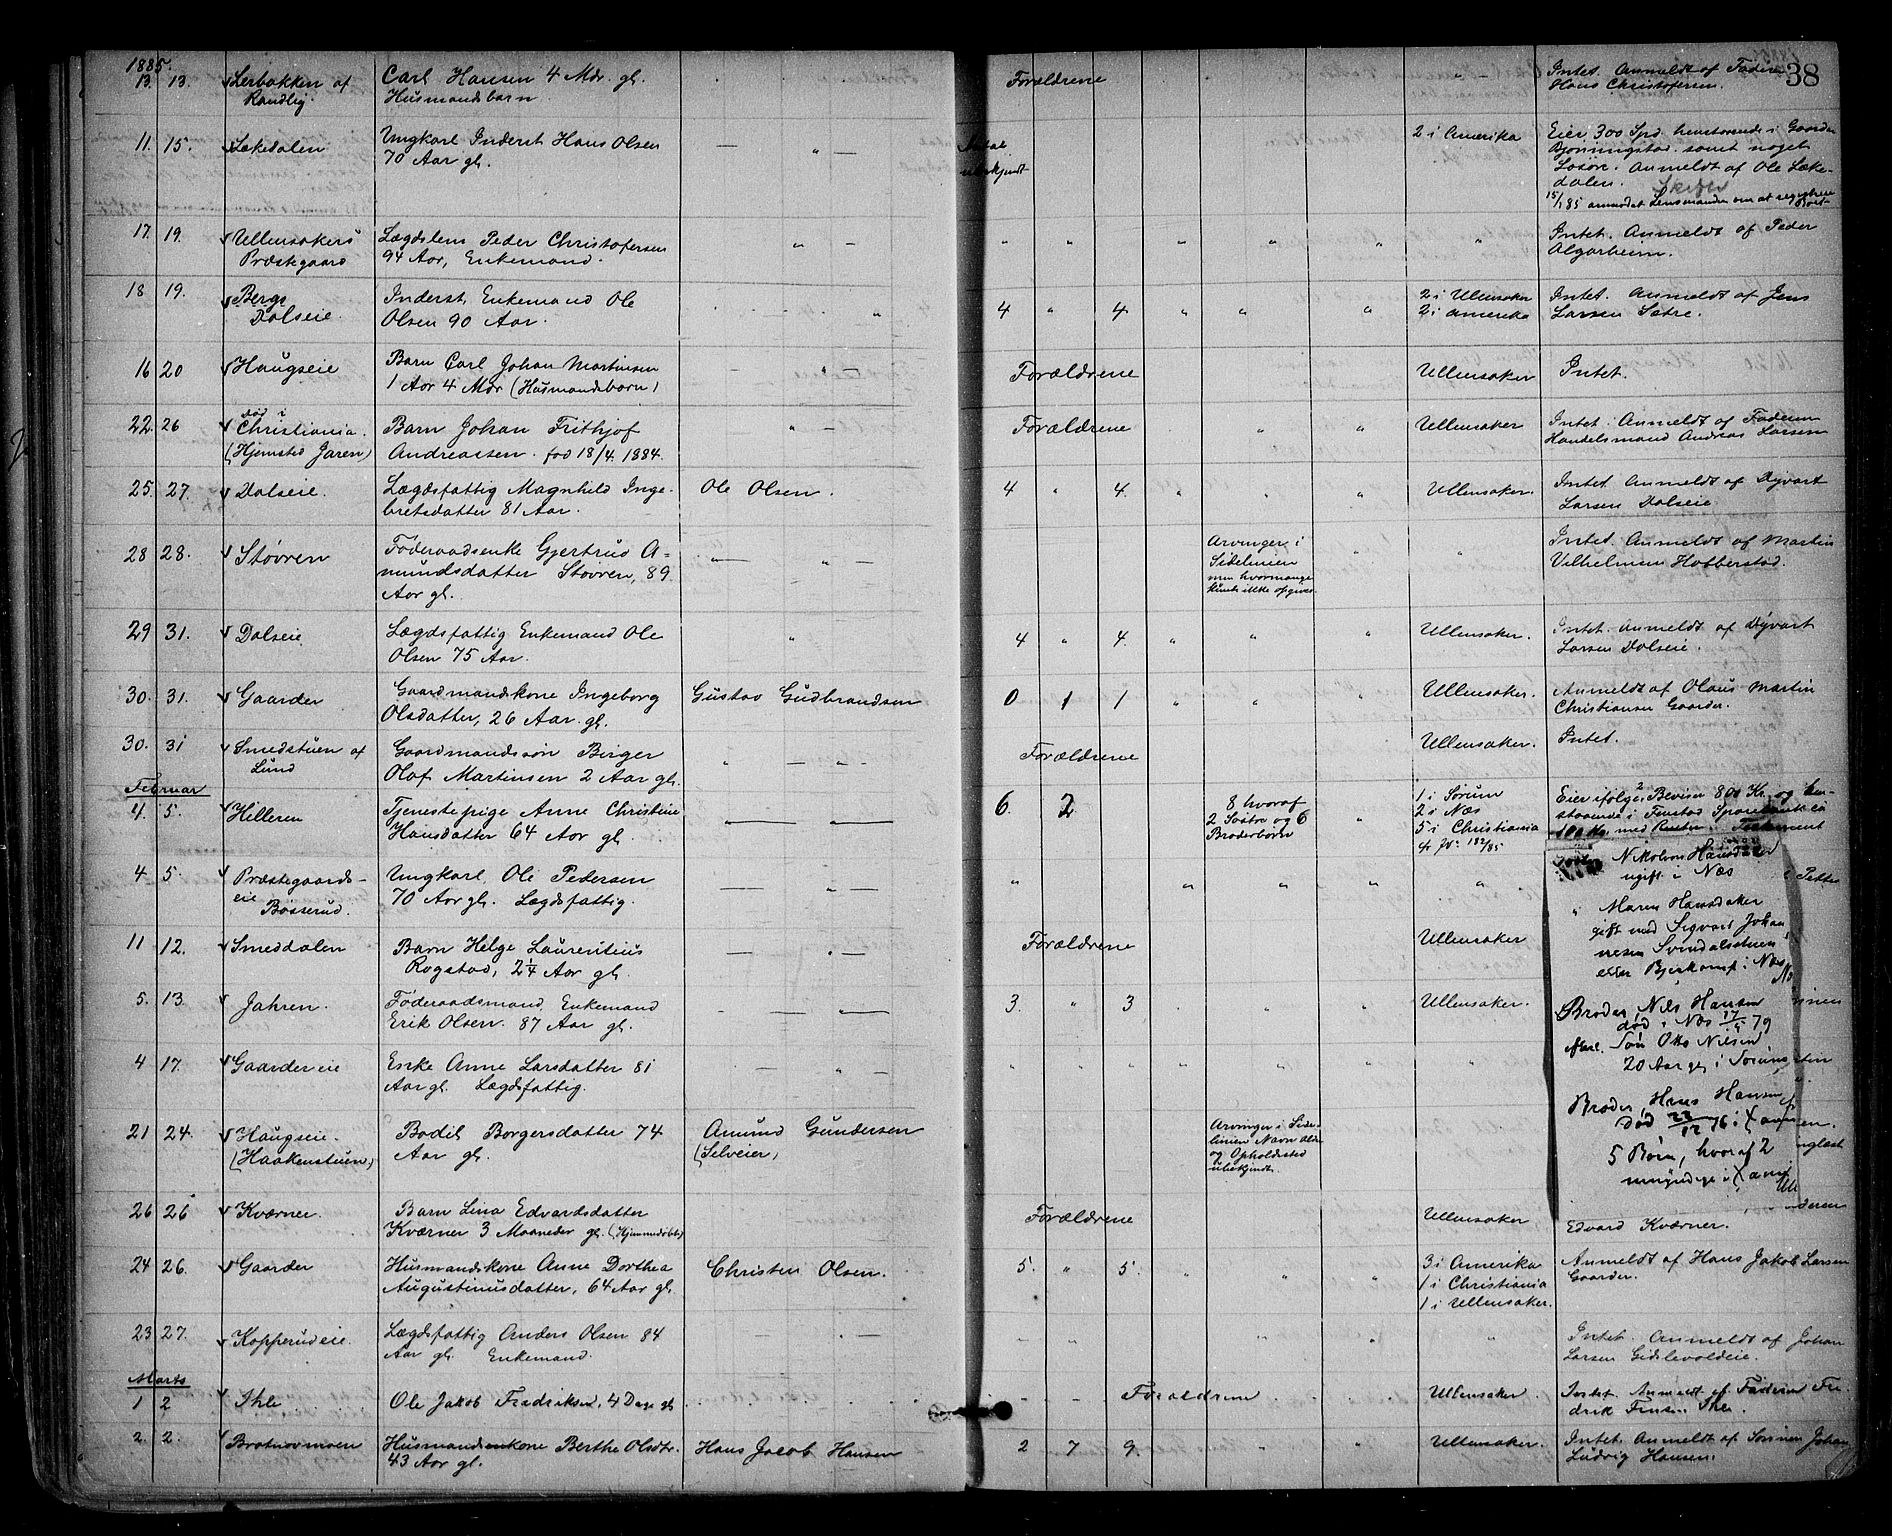 1885.
38
13. 13. Lerbakken af Carl Hansen 4 Mdr. gl. Forældrene Intet. Anmeldt af Faderen
Randlig. Husmandsbarn Hans Christofersen.
11. 15. Lækedalen Ungkarl Inderst Hans Olsen Antal 2 i Amerika Eier 300 Spd. henstaaende i Gaarden
70 Aar gl. ubekjendt samt noget
Løsøre. Anmeldt af Ole Læke-
dalen. Skifte
15/1 85 anmodet Lensmanden om at registrere
17. 19. Ullensakers Lægdslem Peder Christofersen Intet. Anmeldt af Peder
Præstegaard 94 Aar, Enkemand. Algarheim.
18 19. Bergs Inderst, Enkemand Ole 4 " 4. 2 i Ullensaker Intet. Anmeldt af Jens
Dalseie. Olsen 90 Aar. 2 i Amerika Larsen Sætre.
16 20 Haugseie Barn Carl Johan Martinsen Forældrene Ullensaker Intet.
1 Aar 4 Mdr (Husmandsbarn)
22. 26 død i Christiania. Barn Johan Frithjof Forældrene Ullensaker Intet. Anmeldt af Faderen
(Hjemsted Jaren) Andreassen. fød 18/4. 1884. Handelsmand Andreas Larsen
25. 27. Dalseie. Lægdsfattig Magnhild Inge- Ole Olsen. 4 " 4. Ullensaker. Intet Anmeldt af Dyvart
bretsdatter 81 Aar. Larsen Dalseie
28 28. Støvren Føderaadsenke Gjertrud A- Arvinger i Intet. Anmeldt af Martin
mundsdatter Støvren, 89 Sidelinien Vilhelmsen Hobberstad.
Aar gl. men hvormange
kunde ikke opgives.
29 31. Dalseie Lægdsfattig Enkemand Ole 4 " 4. Ullensaker. Intet. Anmeldt af Dyvart
Olsen 75 Aar. Larsen Dalseie.
30. 31. Gaarder Gaardmandskone Ingeborg Gustav Gudbrandsen 0 1 1 Ullensaker. Anmeldt af Olaus Martin
Olsdatter, 26 Aar gl. Christiansen Gaarder.
30. 31 Smedstuen af Gaardmandssøn Berger Forældrene Ullensaker. Intet.
Lund Olaf Martinsen 2 Aar gl.
Februar
4. 5. Helleren Tjenestepige Anne Christine 6. 2 8 hvoraf 1 i Sørum Eier ifølge 2 Beviser 800 Kr. og hen-
Hansdatter 64 Aar gl. 2 Søstre og 6 2 i Næs staaende i Sparebank
Broderbørn 5 i Christiania 100 Kr. med Renter. Testament
4 5. Præstegaards- Ungkarl Ole Pedersen
eie 70 Aar gl. Lægdsfattig.
Bøsserud.
Nikoline Hansdatter
ugift i Næs
" Maren Hansdatter
gift med Sigvart Johan-
nesen Svindalsstuen
eller Bjerkemp i Næs
11 12. Smeddalen Barn Helge Laurentius Forældrene Ullensaker
Rogstad, 2¼ Aar gl.
5. 13. Jahren. Føderaadsmand, Enkemand 3. " 3 Ullensaker.
Erik Olsen. 87 Aar gl.
Broder, Nils Hansen
død i Næs 17/5 79
Søn Otto Nilsen
20 Aar gl i Sørum
4 17. Gaarder eie Enke Anne Larsdatter 81
Aar gl. Lægdsfattig.
Broder, Hans Hansen
Død 23/12 76 i Xania
5 Børn, hvoraf 2
umyndige i Xania
21 24. Haugseie. Bodil Borgersdatter 74 Amund Gundersen Arvinger i Side-
(Haakenstuen) Aar gl. (Selveier) linien Navn
og Opholdssted
ubekjendt.
26 26 Kværner. Barn Lina Edvardsdatter Forældrene Ullensaker
Kværner 3 Maaneder gl. (Hjemmedøbt) Edvard Kværner.
24 26. Gaarder Husmandskone Anne Dorthea Christen Olsen. 5. " 5. 3 i Amerika Anmeldt af Hans Jakob Larsen
Augustinusdatter, 64 Aar gl. 1 i Christiania Gaarder.
1 i Ullensaker.
23 27. Kopperudeie. Lægdsfattig Anders Olsen 84 Intet. Anmeldt af Johan
Aar gl. Enkemand. Larsen Gislevoldeie.
Marts
1 2 Ihle Ole Jakob Fredriksen, 4 Dage gl Forældrene Ullensaker. Intet. Anmeldt af Faderen Fre-
drik Ihle.
2. 2. Husmandskone Berthe Olsdtr. Hans Jacob Hansen 2 7 9. Ullensaker. Intet. Anmeldt af Sønnen Johan
43 Aar gl. Ludvig Hansen.